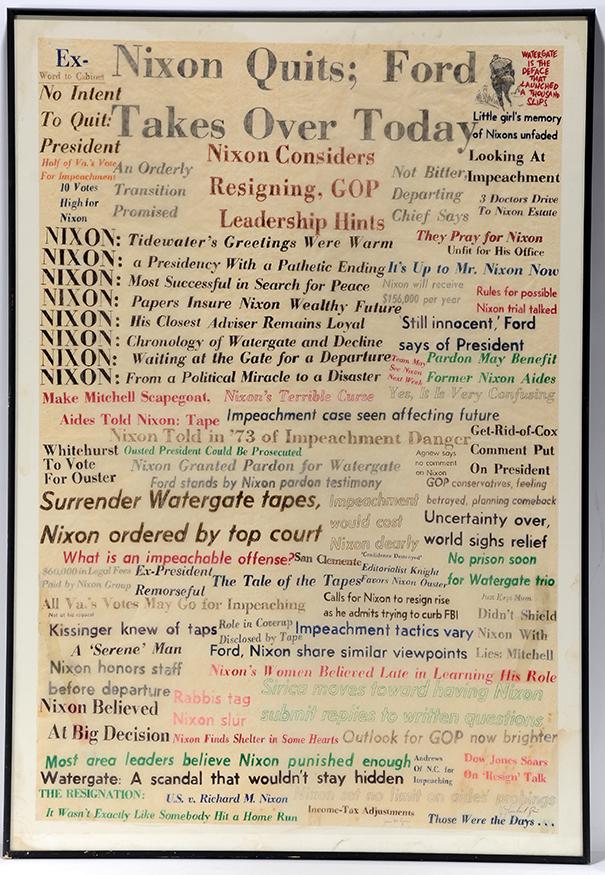 Ex-
Word to Cabinet
Nixon Quits; Ford
Takes Over Today
WATERGATE
IS THE
DEFACE
THAT
LAUNCHED
A THOUSAND
SLIPS
No Intent
To Quit:
President
Little girl's memory
of Nixons unfaded
Half of Va.'s Vote
For Impeachment
10 Votes
High for
Nixon
An Orderly
Transition
Promised
Nixon Considers
Resigning, GOP
Leadership Hints
Not Bitter,
Departing
Chief Says
Looking At
Impeachment
3 Doctors Drive
To Nixon Estate
NIXON: Tidewater's Greetings Were Warm
NIXON: a Presidency With a Pathetic Ending
NIXON: Most Successful in Search for Peace
NIXON: Papers Insure Nixon Wealthy Future
NIXON: His Closest Adviser Remains Loyal
NIXON: Chronology of Watergate and Decline
NIXON: Waiting at the Gate for a Departure
NIXON: From a Political Miracle to a Disaster
They Pray for Nixon
Unfit for His Office
It's Up to Mr. Nixon Now
Nixon will receive
$156,000 per year
Rules for possible
Nixon trial talked
'Still innocent,' Ford
says of President
Team May
See Nixon
Next Week
Pardon May Benefit
Former Nixon Aides
Make Mitchell Scapegoat,
Nixon's Terrible Curse
Yes, It Is Very Confusing
Aides Told Nixon: Tape
Impeachment case seen affecting future
Nixon Told in '73 of Impeachment Danger
Get-Rid-of-Cox
Comment Put
On President
Whitehurst
To Vote
For Ouster
Ousted President Could Be Prosecuted
Nixon Granted Pardon for Watergate
Ford stands by Nixon pardon testimony
Agnew says
no comment
on Nixon
GOP conservatives, feeling
betrayed, planning comeback
Surrender Watergate tapes,
Nixon ordered by top court
Impeachment
would cost
Nixon dearly
Uncertainty over,
world sighs relief
What is an impeachable offense?
San Clemente
"Confidence Destroyed"
Editorialist Knight
Favors Nixon Ouster
No prison soon
for Watergate trio
$60,000 in Legal Fees
Paid by Nixon Group
Ex-President
Remorseful
The Tale of the Tapes
All Va.'s Votes May Go for Impeaching
Calls for Nixon to resign rise
as he admits trying to curb FBI
Just Kept Mum
Didn't Shield
Nixon With
Lies: Mitchell
Not at his request
Kissinger knew of taps
Role in Coverup
Disclosed by Tape
Impeachment tactics vary
A 'Serene' Man
Ford, Nixon share similar viewpoints
Nixon honors staff
before departure
Nixon's Women Believed Late in Learning His Role
Rabbis tag
Nixon slur
Sirica moves toward having Nixon
submit replies to written questions
Nixon Believed
At Big Decision
Nixon Finds Shelter in Some Hearts
Outlook for GOP now brighter
Most area leaders believe Nixon punished enough
Andrews
Of N.C. for
Impeaching
Dow Jones Soars
On 'Resign' Talk
Watergate: A scandal that wouldn't stay hidden
THE RESIGNATION:
U.S. v. Richard M. Nixon
Nixon set no limit on aides' probings
It Wasn't Exactly Like Somebody Hit a Home Run
Income-Tax Adjustments
Those Were the Days . . .